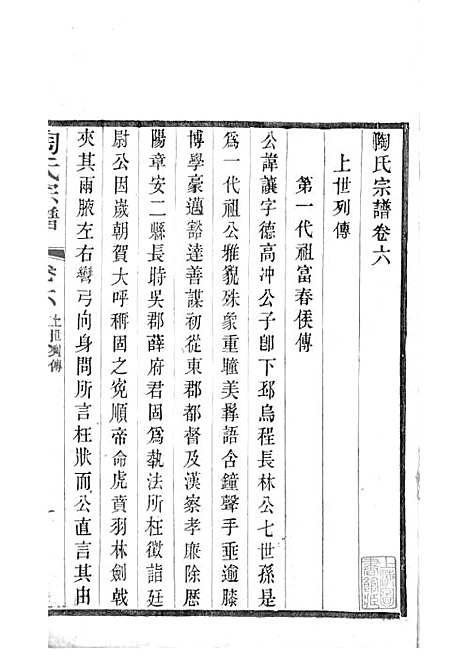 陶氏宗譜卷六
上世列傳
第一代祖富春侯傳
公諱讓字德高冲公子卽下邳烏程長林公七世孫是
爲一代祖公雅貌殊象重瞳美髥語含鐘聲手垂逾膝
博學豪邁豁達善謀初從東郡都督及漢察孝廉除歴
陽章安二縣長時吳郡薛府君固爲執法所枉徵詣廷
尉公因歲朝賀大呼稱固之寃順帝命虎賁羽林劍戟
夾其兩腋左右彎弓向身問所言枉狀而公直言其由
陶氏宗譜
卷六
上世列傳
一